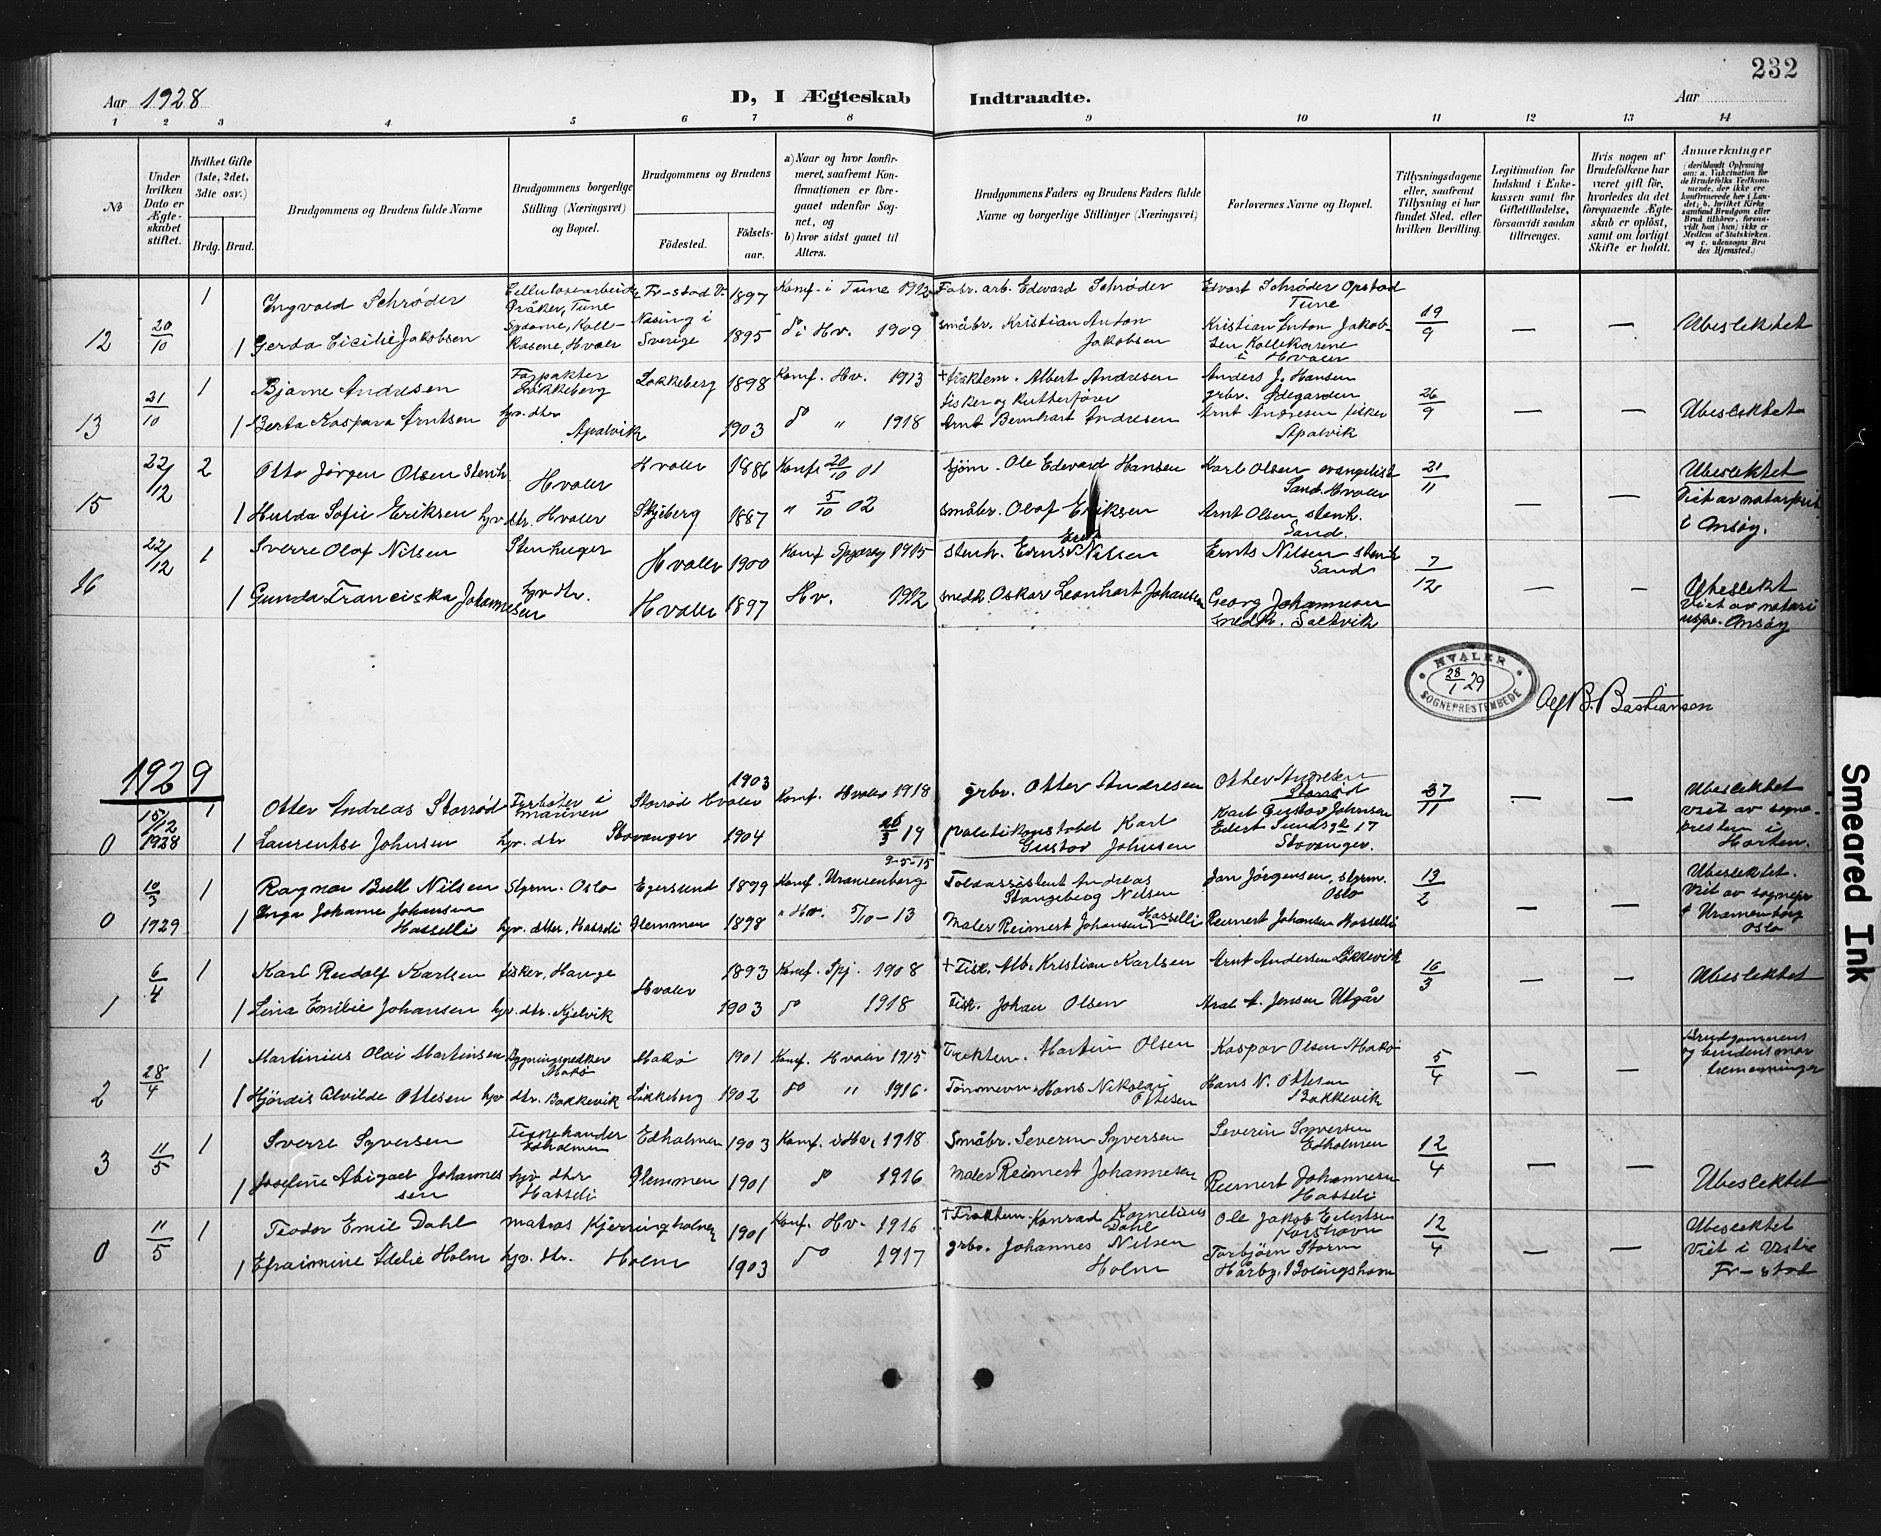 232
Aar 1928
D, I Ægteskab Indtraadte.
Aar
1 2 3 4 5 6 7 8 9 10 11 12 13 14
No
Under hvilken Dato er Ægteskabet stiftet.
Hvilket Gifte (1ste, 2det, 3die osv.)
Brdg. Brud.
Brudgommens og Brudens fulde Navne
Brudgommens borgerlige Stilling (Næringsvei) og Bopæl.
Brudgommens og Brudens
Fødested. Fødsels-aar.
a) Naar og hvor konfirmeret, saafremt Konfirmationen er foregaaet udenfor Sognet, og
b) hvor sidst gaaet til Alters.
Brudgommens Faders og Brudens Faders fulde Navne og borgerlige Stillinger (Næringsvei)
Forlovernes Navne og Bopæl.
Tillysningsdagene eller, saafremt Tillysning ei har fundet Sted, efter hvilken Bevilling.
Legitimation for Indskud i Enkekassen samt for Giftetilladelse, forsaavidt saadan tiltrænges.
Hvis nogen af Brudefolkene har været gift før, hvorledes da det foregaaende Ægteskab er opløst, samt om lovligt Skifte er holdt.
Anmerkninger
12 20/10 1 Ingvald Schrøder Cellulosearbeider Gråker, Tune Fr-stad 1897 Konf. i Tune 1912 Fabr. arb. Edvard Schrøder Edvart Schrøder Opstad Tune 19/9 — — Ubeslektet
1 Gerda Cicilie Jakobsen Sydame, Kollekasene, Hvaler Näsing i Sverige 1895 do i Hv. 1909 småbr. Kristian Anton Jakobsen Kristian Anton Jakobsen Kollekasene i Hvaler
13 21/10 1 Bjarne Andresen Løkkeberg Løkkeberg 1898 Konf. Hv. 1913 + fraktem. Albert Andresen Anders J. Hansen grbr. Ødegården 26/9 — — Ubeslektet
1 Berta Kaspara Arntsen hjv. dtr Apalvik 1903 do " 1918 fisker og kutterfører Arnt Bernhart Andresen Arnt Andresen fisker Apalvik
15 22/12 2 Otto Jørgen Olsen stenh. Hvaler Hvaler 1886 Konf. 20/10 01 sjøm. Ole Edvard Hansen Karl Olsen evangelist Sand, Hvaler 21/11 — Ubeslektet
1 Hulda Sofie Eriksen hjv. dtr. Hvaler Skjeberg 1887 " 5/10 02 småbr. Olof Eriksen Arnt Olsen stenh. Sand. Viet av
16 22/12 1 Sverre Olaf Nilsen Stenhuger Hvaler 1900 Konf 1915 stenh. Ernst Nilsen Ernts Nilsen stenh Sand 7/12 — — Ubeslekt
1 Gunda Franciska Johannesen hjv. dtr. Hvaler 1897 Hv. 1912 snedk. Oskar Leonhart Johansen Georg Johannesen snedk. Saltvik Viet av
HVALER 28/1 29 SOGNEPRESTEMBEDE
Alf B. Bastiansen
1929
0 15/12 1928 1 Otter Andreas Storrød Fyrbøter i marinen Storrød Hvaler 1903 Konf. Hvaler 1918 grbr. Otter Andresen Otter Andresen Storrød 27/11 — — Ubeslektet viet av sogne-presten i Horten.
1 Laurentse Johnsen hjv. dtr Stavanger 1904 26/3 19 politikonstabel Karl Gustav Johnsen Karl Gustav Johnsen Eilert Sunds gt 17 Stavanger.
0 10/3 1929 1 Ragnar Bull Nilsen Styrm. Oslo Egersund 1899 Konf. Uranienborg 9-5-15 Toldassistent Andreas Stangeberg Nilsen Jan Jörgensen, styrm. Oslo 13/2 — — Ubeslektet. Viet av sognepr i Uranienborg Oslo
1 Inga Johanne Johansen Hasselli hjv. dtter. Hasseli Glemmen 1898 " Hv. 5/10-13 Maler Reimert Johansen Hasselli Reimert Johansen Hasselli
1 6/4 1 Karl Rudolf Karlsen fisker, Hauge Hvaler 1893 Konf. Spj. 1908 + Fisk. Alb. Kristian Karlsen Arnt Andersen Løkkevik 16/3 — — Ubeslektet
1 Lina Emilie Johansen hjv. dtr. Kjelvik 1903 do 1918 Fisk. Johan Olsen Aral A. Jensen Utgår
2 28/4 1 Martinius Olai Martinsen Bygningssnedker Makø Makø 1901 Konf. Hvaler 1915 Fraktem. Martin Olsen Kaspar Olsen Makø 5/4 — — Brudgommens og brudens mor tremenninger
1 Hjördis Alvilde Ottesen hjv dtr. Bakkevik Løkkeberg 1902 do " 1916. Tømmerm. Hans Nikolai Ottesen Hans N. Ottesen Bakkevik
3 11/5 1 Sverre Syversen Fiskehandler Edholmen Edholmen 1903 Konf. i Hv. 1918 Småbr. Severin Syversen Severin Syversen Edholmen 12/4 — — Ubeslektet
1 Josefine Abigael Johannessen hjv dtr Hasseli Glemmen 1901 do 1916 Maler Reimert Johannesen Reimert Johannesen Hasseli
0 11/5 1 Teodor Emil Dahl matros Kjerringholmen 1901 Konf. Hv. 1916 + Fraktem. Konrad Kornelius Dahl Ole Jakob Eilertsen Korshavn 12/4 — — Ubeslektet Viet i Vestre Fr-stad
1 Efraimine Adelie Holm hjv. dtr. Holm 1903 do 1917 grbr. Johannes Nilsen Holm Torbjörn Storm
Smeared Ink